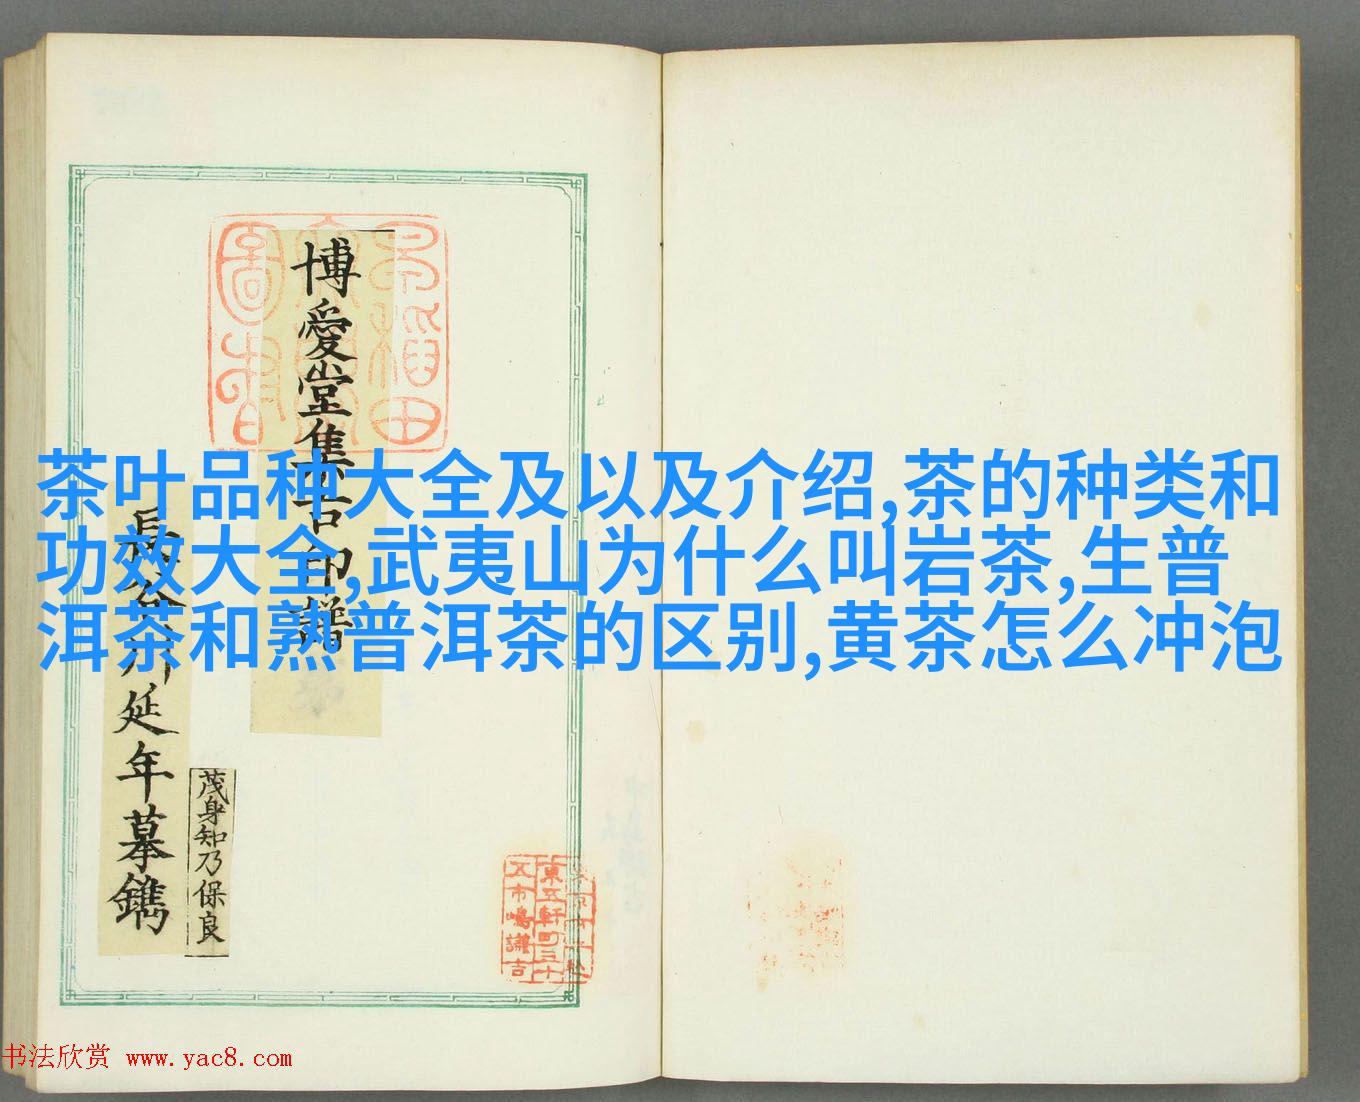 博愛堂集古印譜
長谷川延年摹鐫
茂身知乃保良
茶叶品种大全及以及介绍,茶的种类和
功效大全,武夷山为什么叫岩茶,生普
洱茶和熟普洱茶的区别,黄茶怎么冲泡
東五軒町三十
五市嶋謙吉
书法欣赏 www.yac8.com